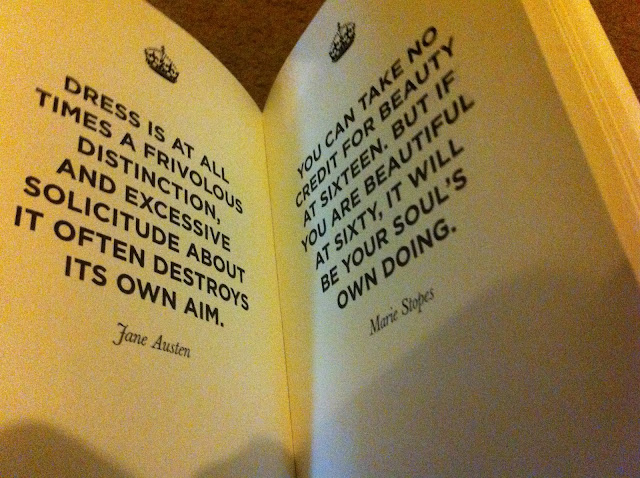 DRESS IS AT ALL
TIMES A FRIVOLOUS
DISTINCTION,
AND EXCESSIVE
SOLICITUDE ABOUT
IT OFTEN DESTROYS
ITS OWN AIM.
Jane Austen
YOU CAN TAKE NO
CREDIT FOR BEAUTY
AT SIXTEEN. BUT IF
YOU ARE BEAUTIFUL
AT SIXTY, IT WILL
BE YOUR SOUL'S
OWN DOING.
Marie Stopes